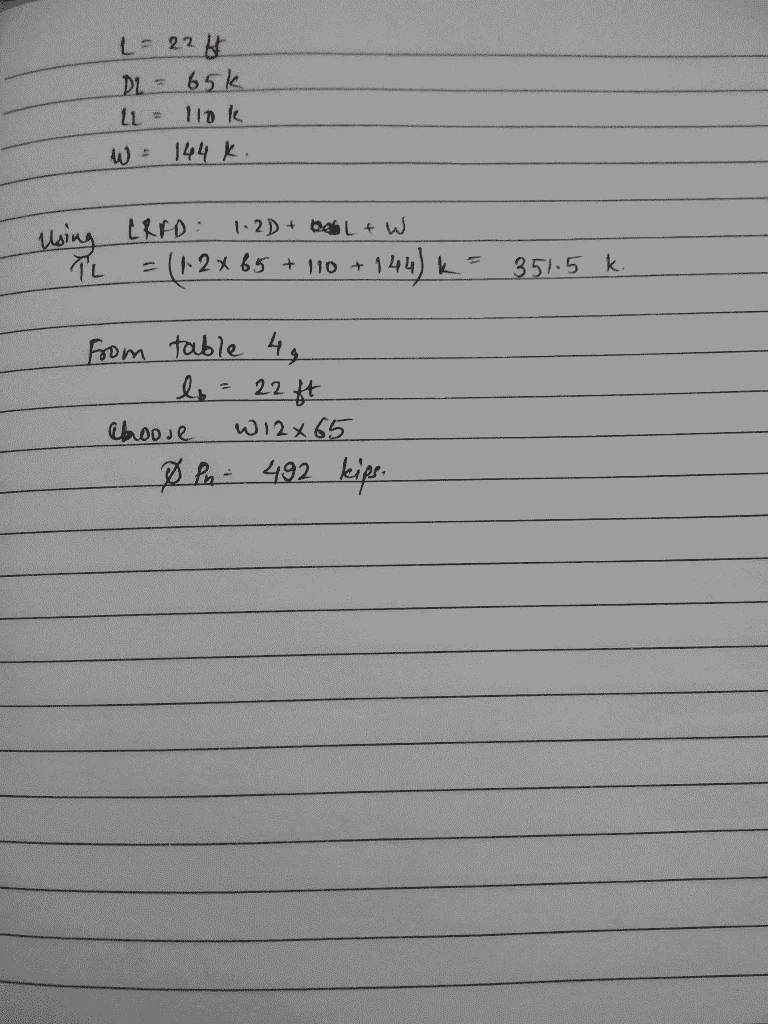 L = 22 ft
DL = 65k
LL = 110 k
W = 144 k.
Using LRFD: 1.2D + L + W
TL = (1.2 x 65 + 110 + 144) k = 351.5 k.
From table 4,
lb = 22 ft
Choose W12x65
Ø Pn = 492 kips.